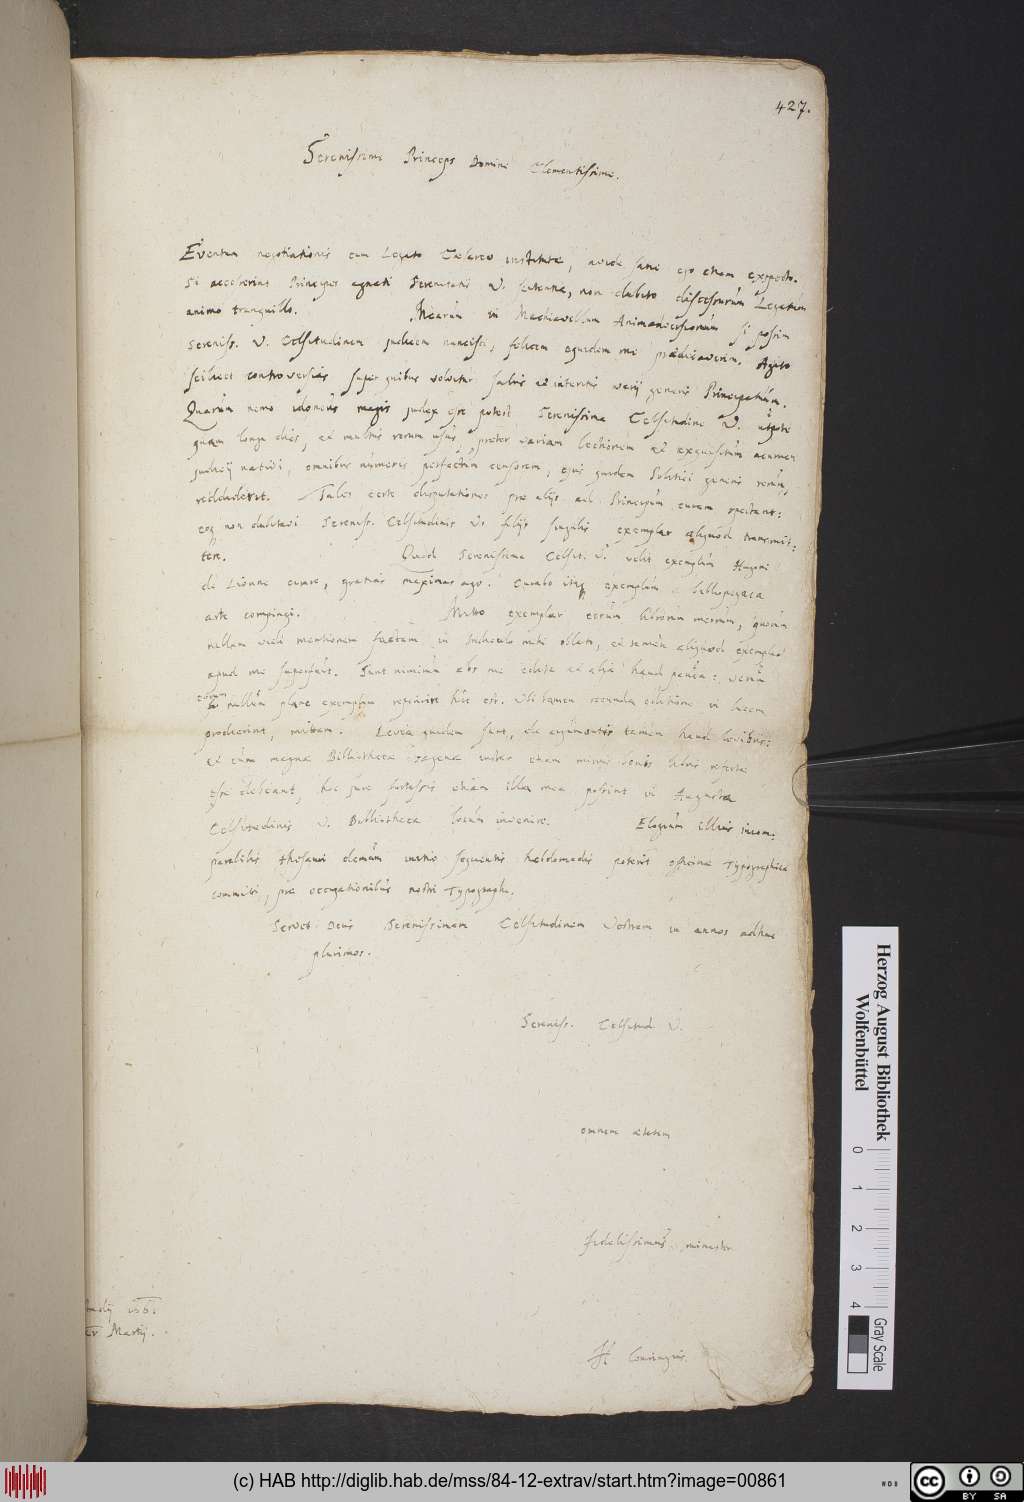 427.
Serenissime Princeps Domine Clementissime.
Eventum negotiationis cum Legato Caesareo institutae, avide sane ego etiam exspecto.
Si accesserint Principes agnati Serenitatis V. sententiae, non dubito discessurum Legatum
animo tranquillo. Mearum in Machiavellum Animadversionum si possim
Sereniss. V. Celsitudinem judicem nancisci, felicem equidem me praedicaverim. Agito
scilicet controversias super quibus volvitur salus et interitus varij generis Principatuum.
Quarum nemo idoneus magis judex esse potest Serenissima Celsitudine V. utpote
quam longa dies, et multus rerum usus, praeter variam lectionem et exquisitum acumen
judicij nativi, omnibus numeris perfectum censorem, ejus quidem Politici generis rerum,
reddiderit. Tales certe disputationes prae alijs ad Principum curam spectant:
eoq non dubitavi Sereniss. Celsitudinis V. filijs singulis exemplar aliquod transmit:
tere. Quod Serenissima Celsit. V. velit exemplum Hugoni
de Lionne curare, gratias maximas ago. Curabo itaq exemplum a bibliopegaea
arte compingi. Mitto exemplar eorum librorum meorum, quorum
nullam vidi mentionem factam in Indiculo mihi oblato, et tamen aliquod exemplar
apud me superfuit. Sunt nimirum abs me edita et alia haud pauca: verum
eorum nullum plane exemplum reperire hic est. Ubi tamen secunda editione in lucem
prodierint, mittam. Levia quidem sunt, de argumentis tamen haud levibus:
et cum magnae Bibliothecae sagenae instar etiam minus bonis libris refertae
esse debeant, hoc jure fortassis etiam illa mea possint in Augusta
Celsitudinis V. Bibliotheca locum invenire. Elogium illius incom:
parabilis thesauri demum initio sequentis hebdomadis poterit officinae Typographicae
committi, prae occupationibus nostri Typographi.
Servet Deus Serenissimam Celsitudinem Vestram in annos adhuc
plurimos.
Sereniss. Celsitud. V.
omnem aetatem
fidelissimus minister
Martij.
H Conringius.
Herzog August Bibliothek
Wolfenbüttel
0 1 2 3 4
Gray Scale
(c) HAB http://diglib.hab.de/mss/84-12-extrav/start.htm?image=00861
cc BY SA